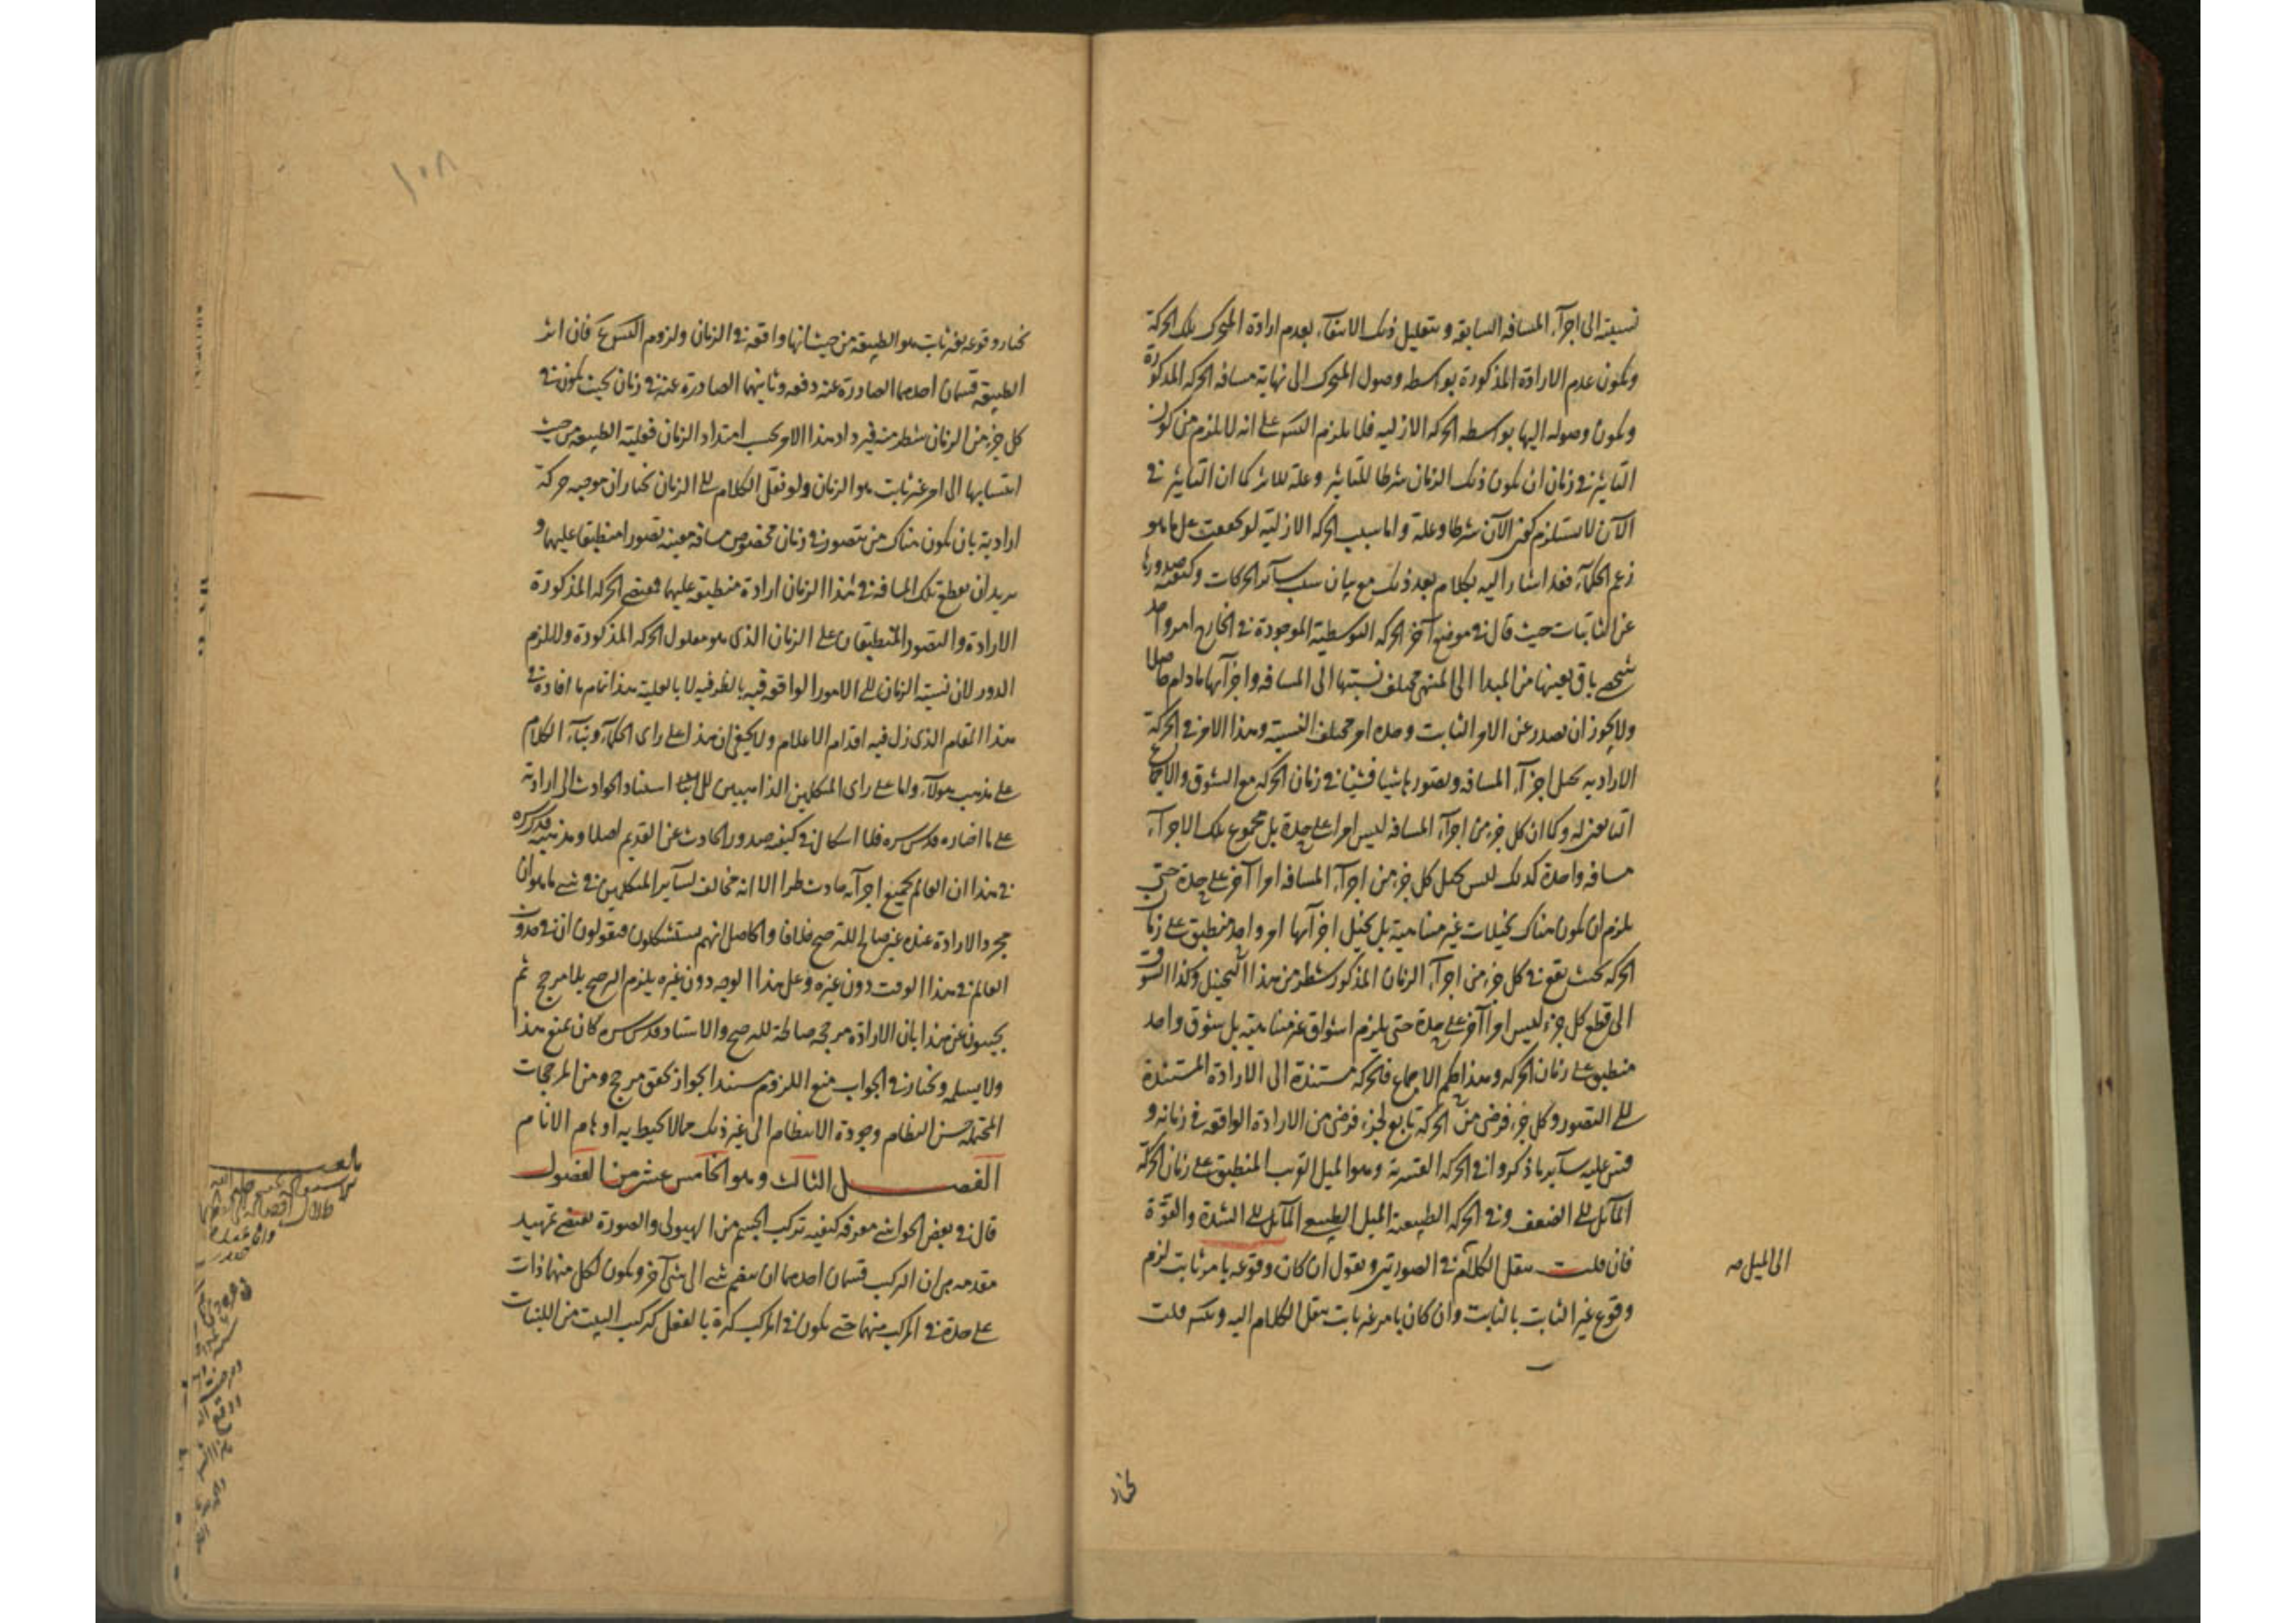 نسبته الى اجزآء المسافه السابقه و بتعليل ذلك الانتفآء بعدم ارادة المتحرك تلك الحركة
ويكون عدم الارادة المذكورة بواسطه وصول المتحرك الى نهاية مسافه الحركه المذكورة
ويكون وصوله اليها بواسطه الحركه الازليه فلا يلزم التس على انه لا يلزم من كون
التاثير في زمان ان يكون ذلك الزمان شرطا للتاثير وعلة للاثر كما ان التاثير في
الآن لا يستلزم كون الآن شرطا وعلة واما سبب الحركه الازلية لو تحققت على ما هو
زعم الحكمآء فقد اشار اليه بكلام بعد ذلك مع بيان سبب سآئر الحركات وكيفيه صدورها
عن الثابتات حيث قال في موضع آخر الحركه التوسطية الموجودة في الخارج امر واحد
شخصي باق بعينها من المبدا الى المنتهى مختلف نسبتها الى المسافه واجزآئها ما دام حاصلا
ولا يجوز ان يصدر عن الامر الثابت وحده امر مختلف النسبة وهذا الامر في الحركة
الاراديه تخيل اجزآء المسافه وتصورها شيئا فشيئا في زمان الحركه مع الشوق والاجماع
التابعين له وكما ان كل جزء من اجزآء المسافه ليس امرا على حدة بل مجموع تلك الاجزآء
مسافه واحدة كذلك ليس تخيل كل جزء من اجزآء المسافه امرا آخر على حدة حتى
يلزم ان يكون هناك تخيلات غير متناهية بل تخيل اجزآئها امر واحد منطبق على زمان
الحركه بحيث يقع في كل جزء من اجزآء الزمان المذكور شطر من هذا التخيل وكذا الشوق
الى قطع كل جزء ليس امرا آخر على حدة حتى يلزم اشواق غير متناهيه بل شوق واحد
منطبق على زمان الحركه وهذا حكم الاجماع فالحركه مستندة الى الارادة المستندة
الى التصور وكل جزء فرضي من الحركة تابع لجزء فرضي من الارادة الواقعه في زمانه و
قس عليه سآئر ما ذكروا في الحركه القسرية وهو الميل القريب المنطبق على زمان الحركة
المآئل الى الضعف وفي الحركه الطبيعية الميل الطبيعي المآئل الى الشدة والقوة
فان قلت ننقل الكلام في الصورتين ونقول ان كان وقوعه بامر ثابت لزم
الى الميل صه
وقوع غير الثابت بالثابت وان كان بامر غير ثابت ننقل الكلام اليه ويتس قلت
نختار
١٠٨
نختار وقوعه بغير ثابت هو الطبيعة من حيث انها واقعه في الزمان ولزوم التس ممنوع فان اثر
الطبيعة قسمان احدهما الصادرة عنه دفعه وثانيهما الصادرة عنه في زمان بحيث يكون في
كل جزء من الزمان شطر منه فيزداد هذا الامر بحسب امتداد الزمان فعلية الطبيعه من حيث
انتسابها الى امر غير ثابت هو الزمان ولو نقل الكلام الى الزمان نختار ان موجبه حركة
ارادية بان يكون هناك من يتصور في زمان مخصوص مسافة معينه تصورا منطبقا عليهما و
يريد ان يقطع تلك المسافه في هذا الزمان ارادة منطبقه عليهما فيقتضي الحركه المذكورة
الارادة والتصور المنطبقان على الزمان الذى هو معلول الحركه المذكورة ولا يلزم
الدور لان نسبة الزمان الى الامور الواقعه فيه بالظرفيه لا بالعلية هذا تمام ما افاده في
هذا المقام الذى زل فيه اقدام الاعلام ولا يخفى ان هذا على راى الحكمآء وبنآء الكلام
على مذهب هولآء واما على راى المتكلمين الذاهبين الى استناد الحوادث الى ارادته
على ما اختاره قدس سره فلا اشكال في كيفيه صدور الحادث عن القديم اصلا ومذهبه قدس سره
في هذا ان العالم بجميع اجزآئه حادث طرا الا انه مخالف لسآئر المتكلمين في شئ ما هو ان
مجرد الارادة عنده غير صالح للترجيح خلافا والحاصل انهم يستشكلون فيقولون ان في حدوث
العالم في هذا الوقت دون غيره وعلى هذا الوجه دون غيره يلزم الترجيح بلا مرجح ثم
يجيبون عن هذا بان الارادة مرجحه صالحة للترجيح والاستاد قدس سره كان يمنع هذا
ولا يسلمه ويختار في الجواب منع اللزوم مستندا بجواز تحقق مرجح ومن المرجحات
المحتمله حسن النظام وجودة الانتظام الى غير ذلك مما لا يحيط به اوهام الانام
الفصــل الثالث وهو الخامس عشر من الفصول
قال في بعض الحواشي معرفه كيفيه تركب الجسم من الهيولى والصورة يقتضي تمهيد
مقدمه هي ان التركب قسمان احدهما ان ينضم شئ الى شئ آخر ويكون لكل منهما ذات
على حدة في المركب منهما حتى يكون في المركب كثرة بالفعل كتركب البيت من اللبنات